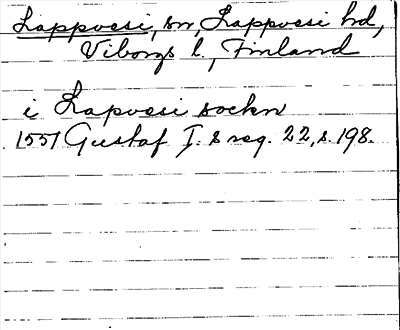 Lappvesi, sn, Lappvesi hd,
Viborgs l., Finland
i Lapvesi sockn
1551 Gustaf I.s reg. 22, s. 198.